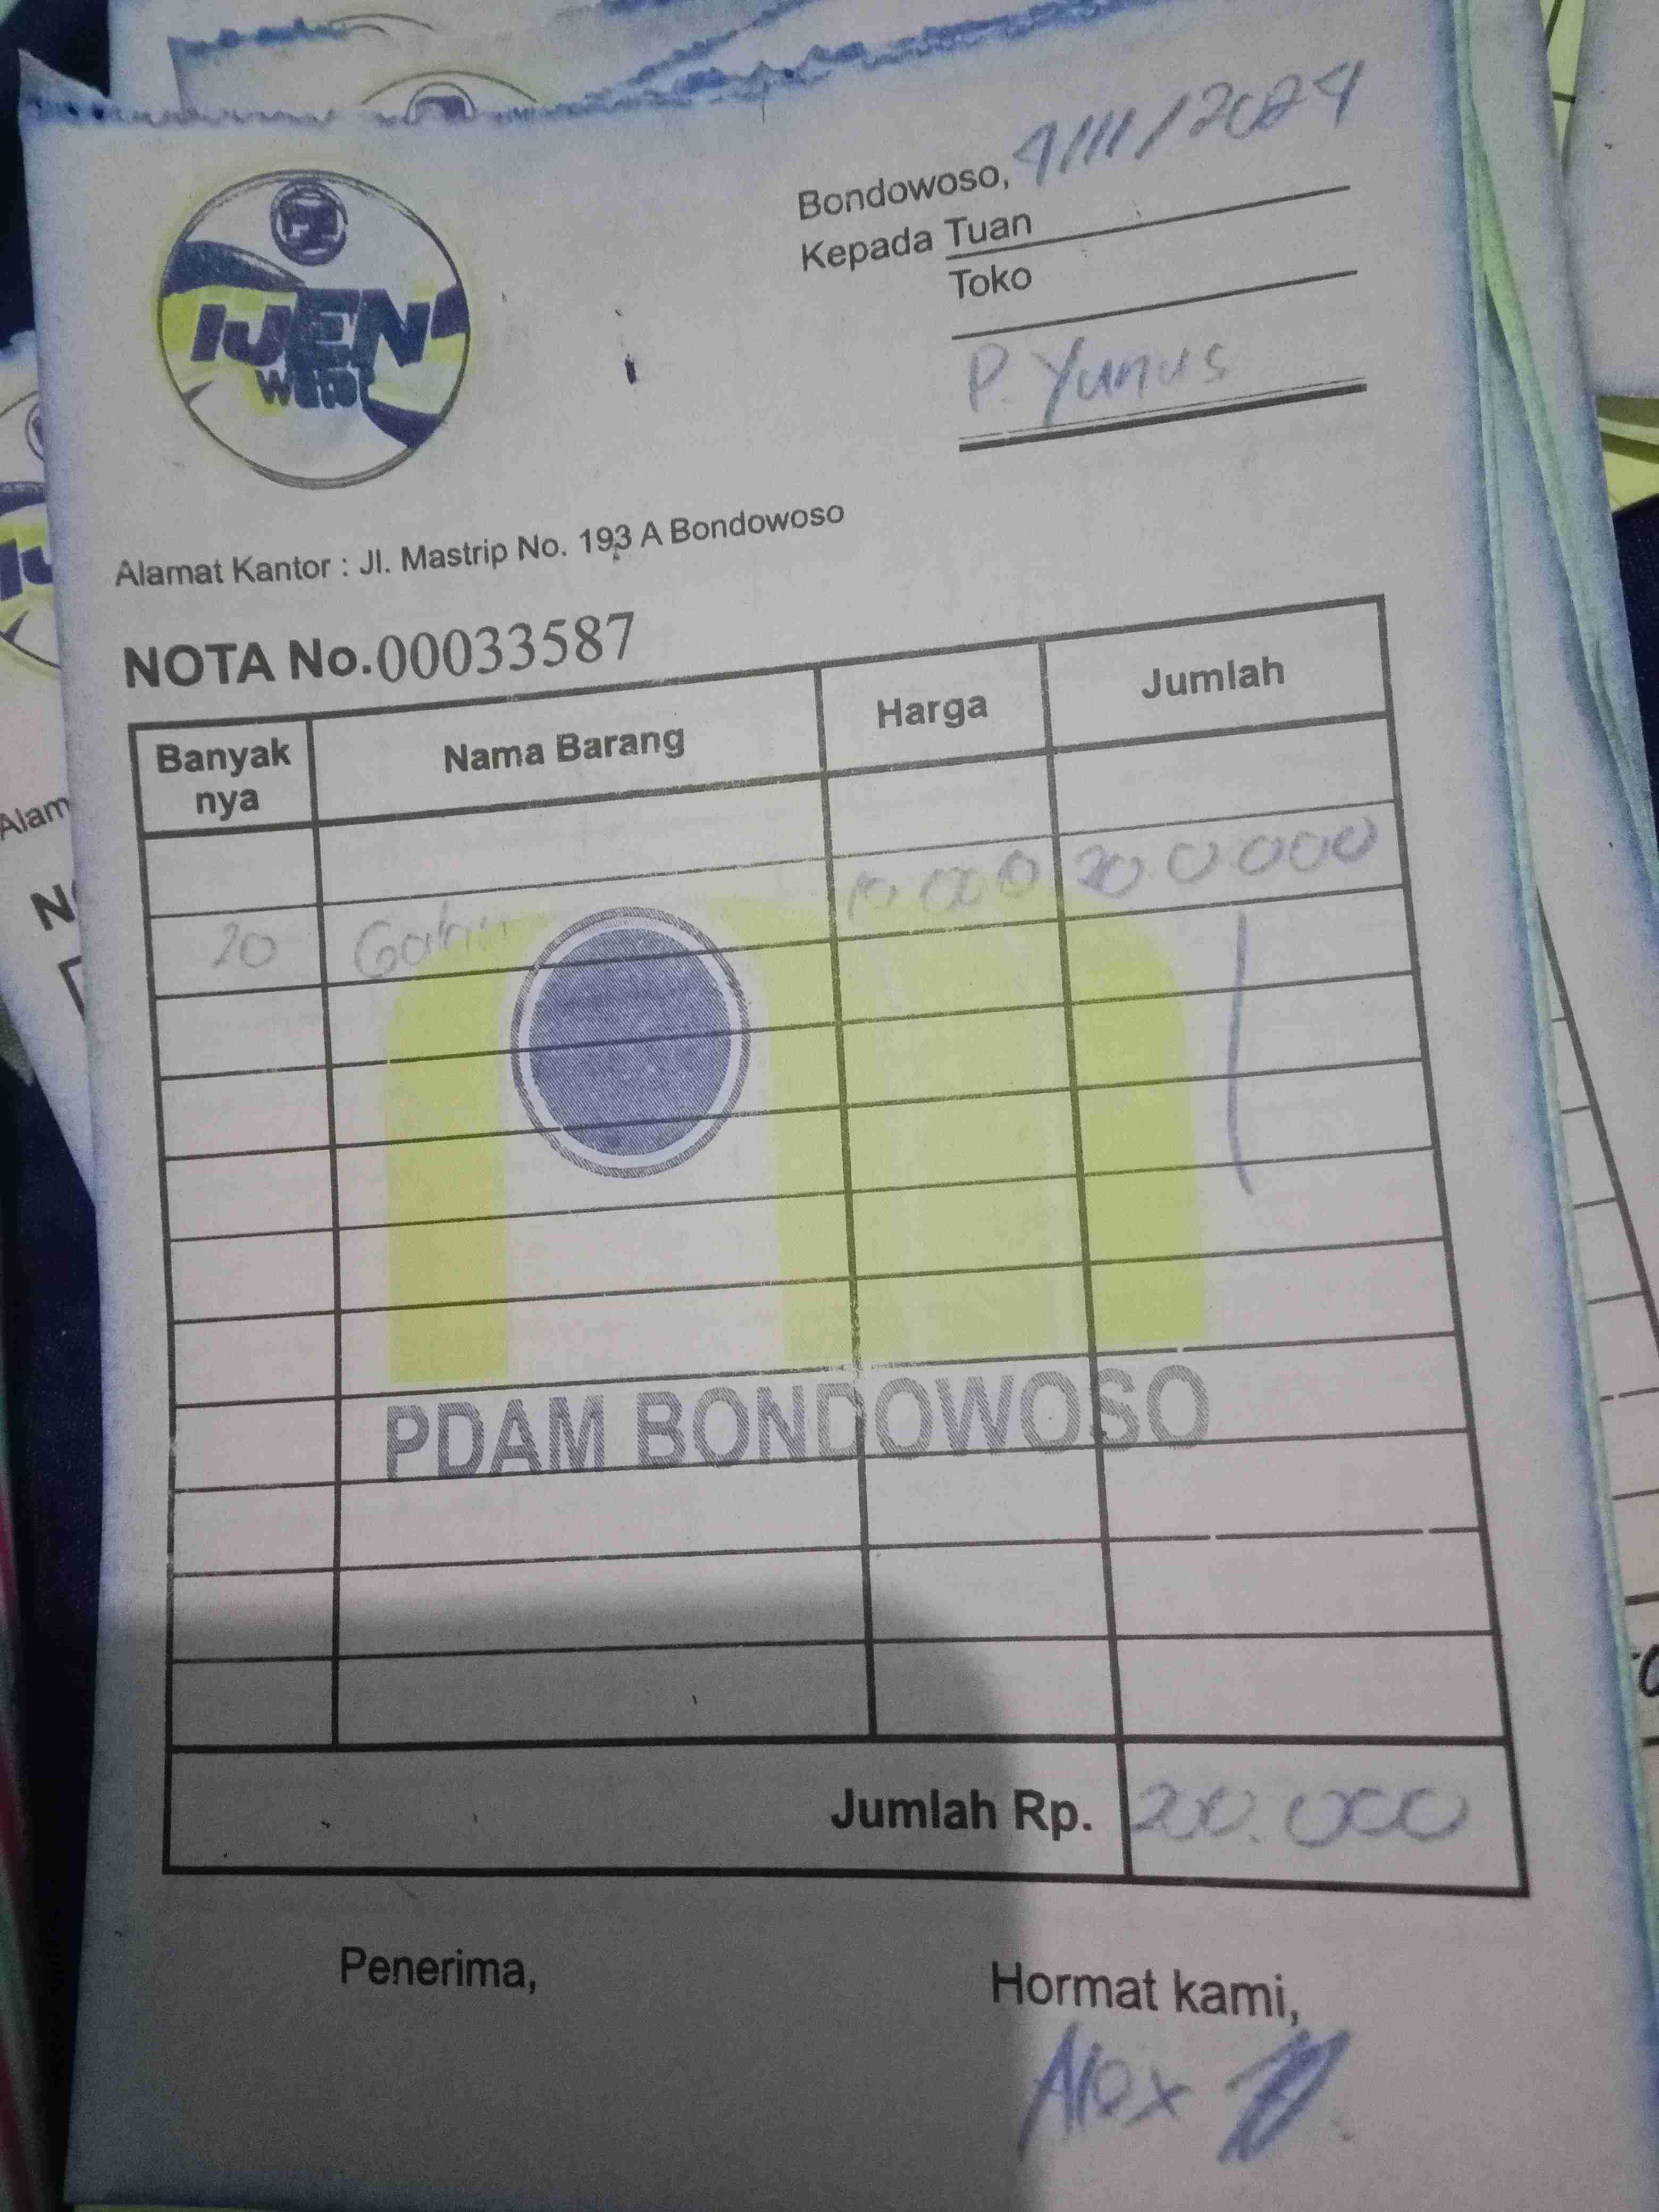 IJEN
Water
Bondowoso, 9/11/2024
Kepada Tuan
Toko
P. Yunus
Alamat Kantor : Jl. Mastrip No. 193 A Bondowoso
NOTA No.00033587
Banyak nya Nama Barang Harga Jumlah
20 10.000 200.000
PDAM BONDOWOSO
Jumlah Rp. 200.000
Penerima, Hormat kami,
Alex